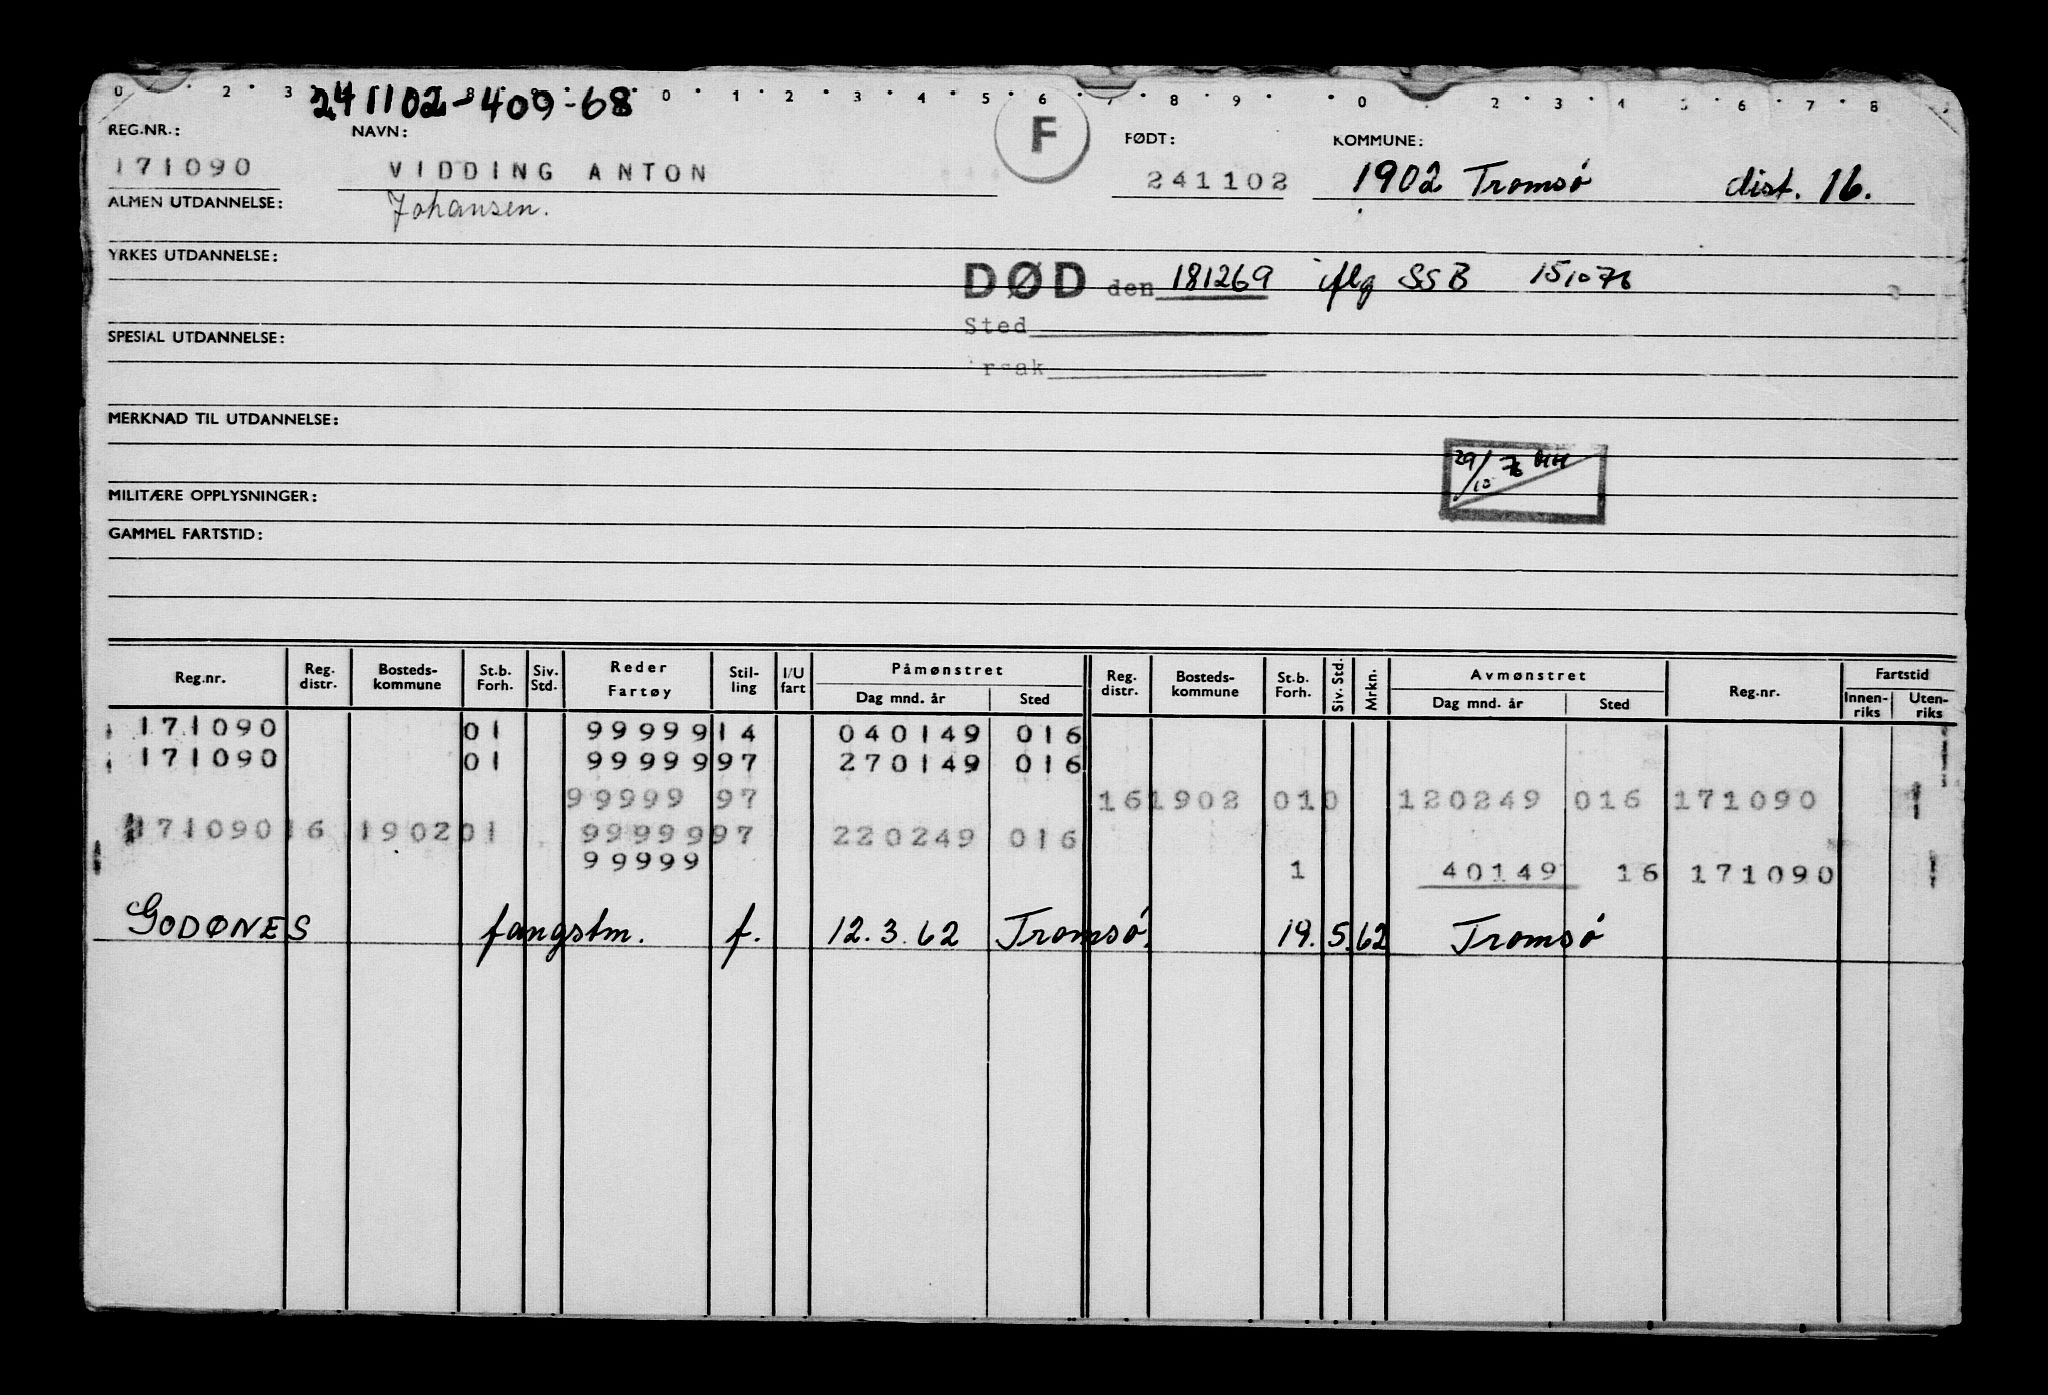 0 · · 2 · 3 241102-409-68 · 0 · 1 · 2 · 3 · 4 · 5 · 6 · 7 · 8 · 9 · · 0 · 2 · 3 · 4 · 5 · 6 · 7 · 8
REG.NR.: NAVN: F FØDT: KOMMUNE:
171090 VIDDING ANTON 241102 1902 Tromsø dist. 16.
ALMEN UTDANNELSE: Johansen.
YRKES UTDANNELSE:
DØD den 181269 iflg SSB 151076
Sted
SPESIAL UTDANNELSE:
rsak
MERKNAD TIL UTDANNELSE:
29/10 76
MILITÆRE OPPLYSNINGER:
GAMMEL FARTSTID:
Reg.nr. Reg. distr. Bosteds-kommune St.b. Forh. Siv. Std. Reder Fartøy Stil-ling I/U fart Påmønstret Dag mnd. år Sted Reg. distr. Bosteds-kommune St.b. Forh. Siv. Std. Mrkn. Avmønstret Dag mnd. år Sted Reg.nr. Fartstid Innen-riks Uten-riks
171090 01 99999 14 040149 016
171090 01 99999 97 270149 016
99999 97 16 1902 010 120249 016 171090
171090 16 1902 01 99999 97 220249 016
99999 1 40149 16 171090
GODØNES fangstm. f. 12.3.62 Tromsø. 19.5.62 Tromsø